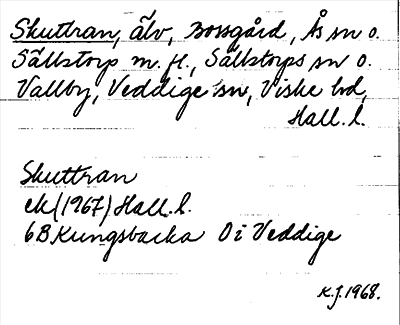 Skuttran, älv, Bossgård, Ås sn o.
Sällstorp m. fl., Sällstorps sn o.
Vallby, Veddige sn, Viske hd,
Hall. l.
Skuttran
ek (1967) Hall. l.
6B Kungsbacka Ö i Veddige
K.J. 1968.